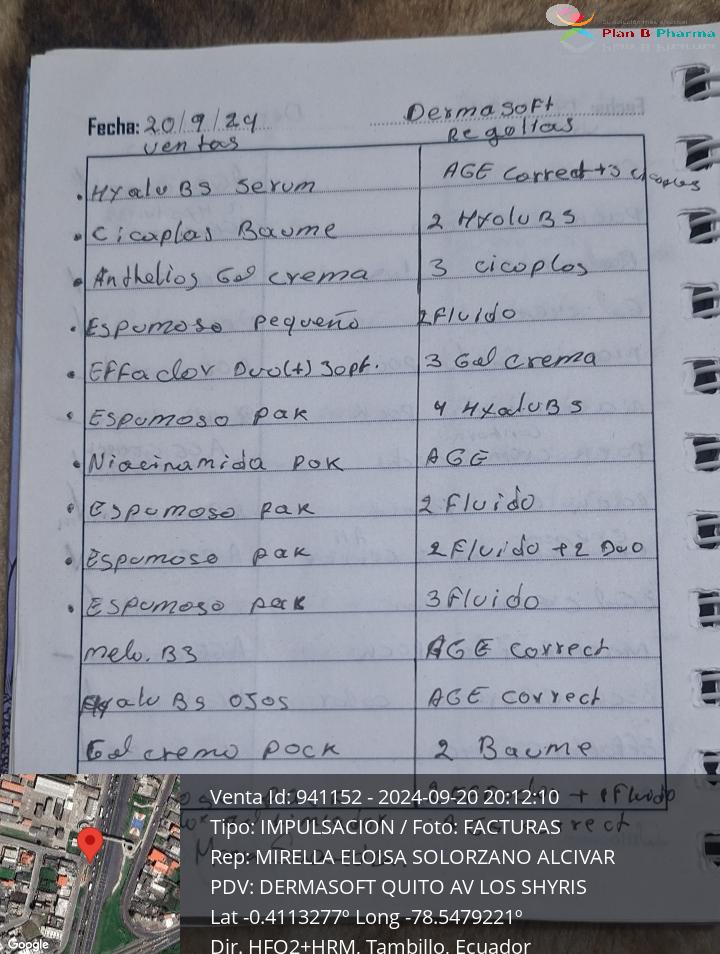 Plan B Pharma
Fecha: 20/9/24 DermaSoft
ventas Regalias
. Hyalu B5 Serum AGE Correct + 3 cicaplas
. Cicaplas Baume 2 Hyalu B5
. Anthelios Gel crema 3 cicaplas
. Espumoso pequeño 2 Fluido
. Effaclor Duo(+) 30pt. 3 Gel crema
. Espumoso pak 4 Hyalu B5
. Niacinamida pak AGE
. Espumoso pak 2 Fluido
. Espumoso pak 2 Fluido + 2 Duo
. Espumoso pak 3 Fluido
Mela. B3 AGE correct
Hyalu B5 Ojos AGE correct
Gel crema pack 2 Baume
+ Fluido
Venta Id: 941152 - 2024-09-20 20:12:10
Tipo: IMPULSACION / Foto: FACTURAS
Rep: MIRELLA ELOISA SOLORZANO ALCIVAR
PDV: DERMASOFT QUITO AV LOS SHYRIS
Lat -0.4113277º Long -78.5479221º
Dir. HFQ2+HRM, Tambillo, Ecuador
Google